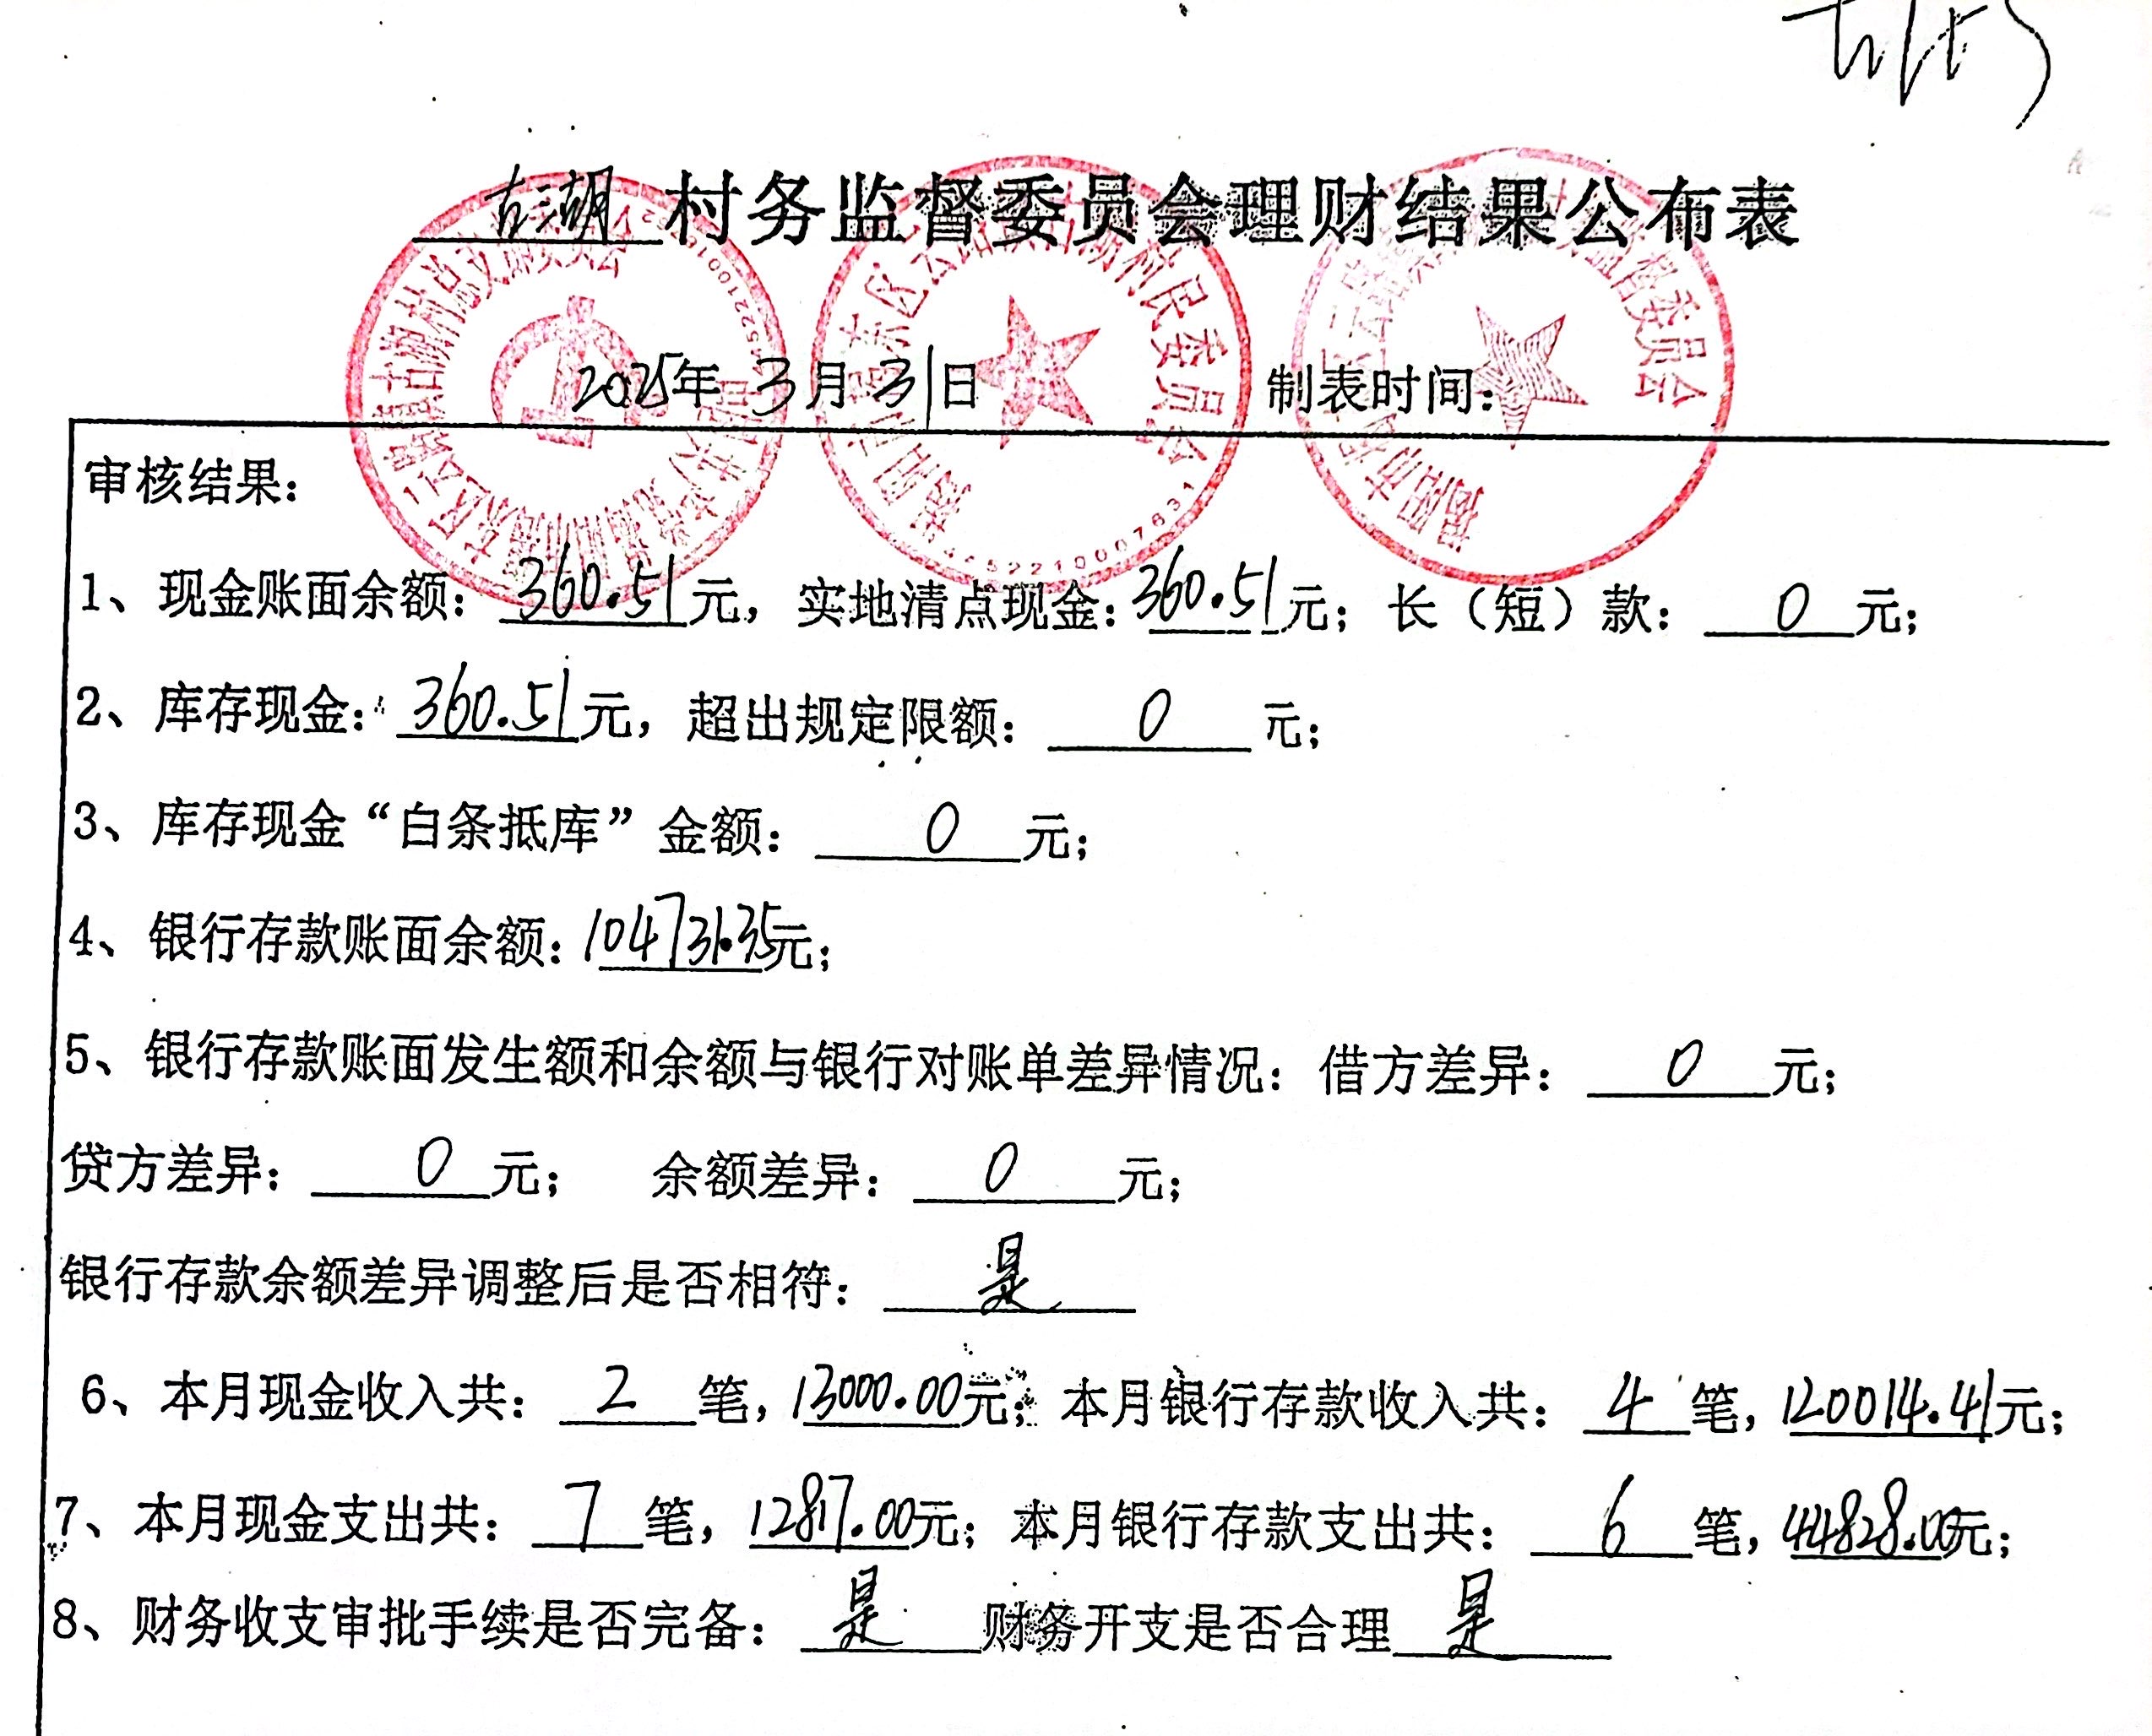 古湖村务监督委员会理财结果公布表
2025年3月31日 制表时间:
审核结果:
1、现金账面余额: 360.51元, 实地清点现金: 360.51元; 长（短）款: 0元;
2、库存现金: 360.51元, 超出规定限额: 0元;
3、库存现金“白条抵库”金额: 0元;
4、银行存款账面余额: 104731.35元;
5、银行存款账面发生额和余额与银行对账单差异情况: 借方差异: 0元;
贷方差异: 0元; 余额差异: 0元;
银行存款余额差异调整后是否相符: 是
6、本月现金收入共: 2笔, 13000.00元; 本月银行存款收入共: 4笔, 120014.41元;
7、本月现金支出共: 7笔, 12817.00元; 本月银行存款支出共: 6笔, 44828.00元;
8、财务收支审批手续是否完备: 是 财务开支是否合理 是